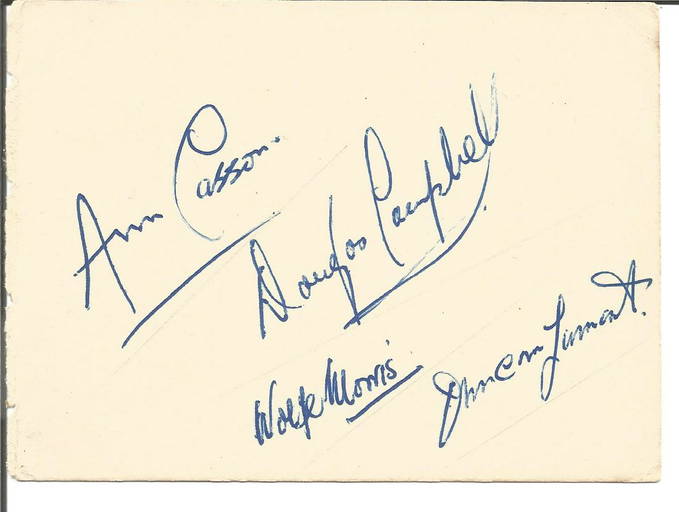 Ann Casson.
Douglas Campbell
Wolfe Morris
Duncan Lamont.